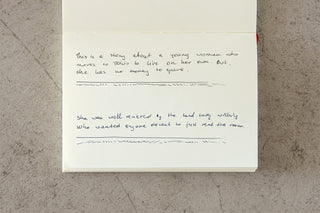 This is a story about a young woman who
moves to to live on her own. But,
she has no money to spare.
She was well received by the land lady
who wanted anyone decent to just rent the room.